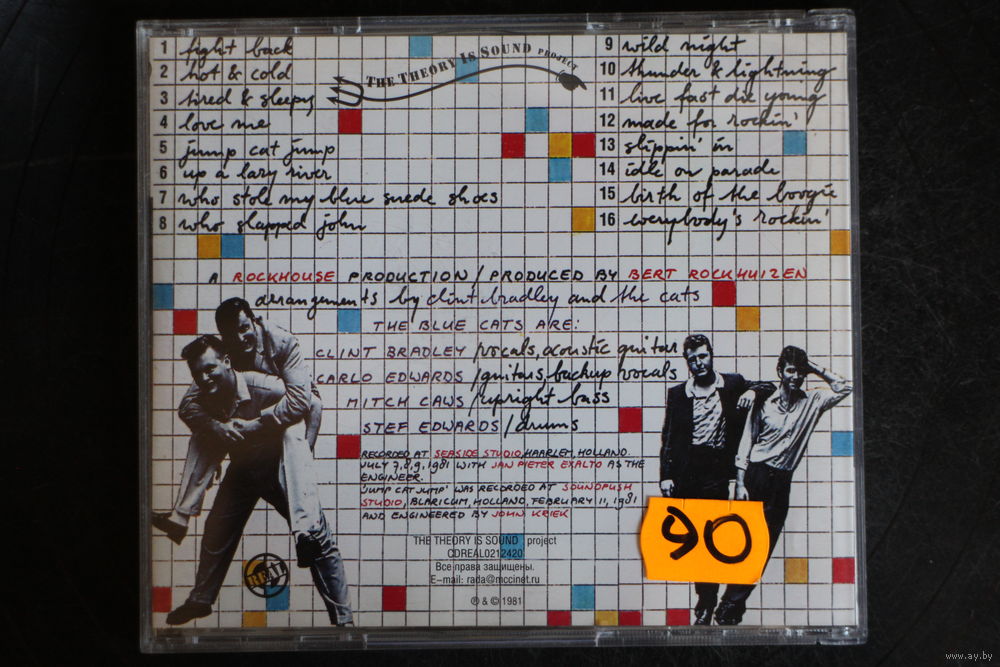 1 fight back
2 hot & cold
3 tired & sleepy
4 love me
5 jump cat jump
6 up a lazy river
7 who stole my blue suede shoes
8 who slapped john
THE THEORY IS SOUND PROJECT
9 wild night
10 thunder & lightning
11 live fast die young
12 made for rockin'
13 slippin' in
14 idle on parade
15 birth of the boogie
16 everybody's rockin'
A ROCKHOUSE PRODUCTION / PRODUCED BY BERT ROCKHUIZEN
arrangements by clint bradley and the cats
THE BLUE CATS ARE:
CLINT BRADLEY / vocals, acoustic guitar
CARLO EDWARDS / guitars, backup vocals
MITCH CAWS / upright bass
STEF EDWARDS / drums
RECORDED AT SEASIDE STUDIO, HAARLEM, HOLLAND.
JULY 7,8,9, 1981 WITH JAN PIETER EXALTO AS THE
ENGINEER.
'JUMP CAT JUMP' WAS RECORDED AT SOUNDPUSH
STUDIO, BLARICUM, HOLLAND, FEBRUARY 11, 1981
AND ENGINEERED BY JOHN KRIEK
THE THEORY IS SOUND project
CDREAL0212420
Все права защищены.
E-mail: rada@mccinet.ru
℗ & © 1981
REAL
90
www.ay.by